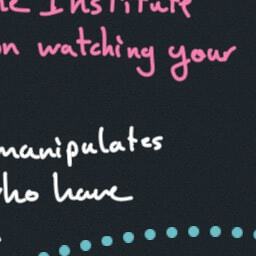 Institute
on watching your
manipulates
who have